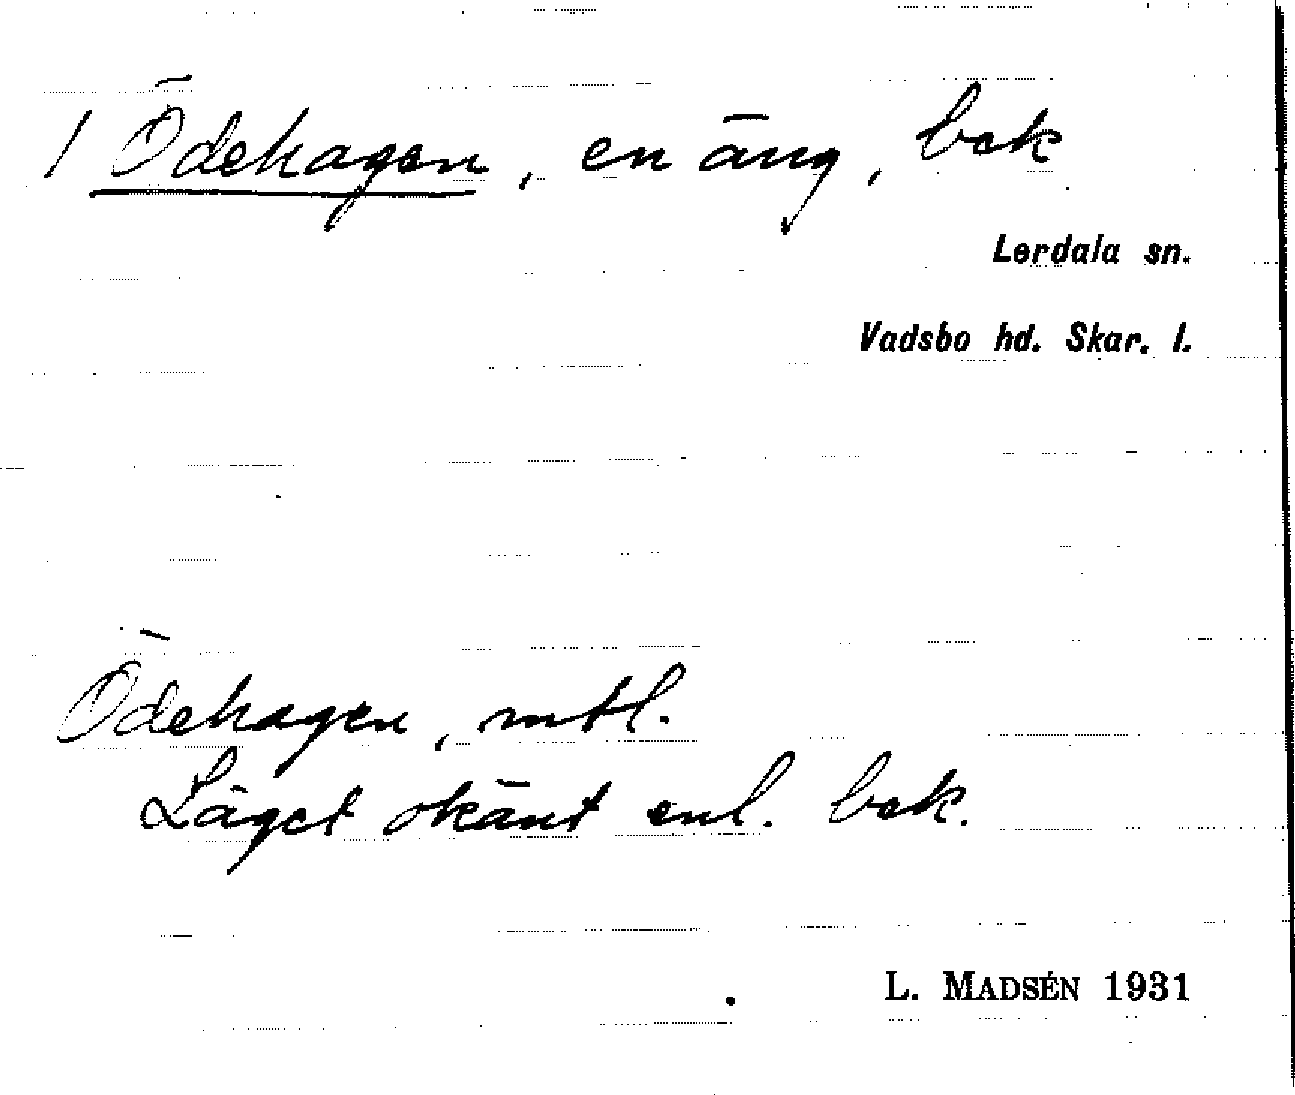 / Ödehagen, en äng, bek
Lerdala sn.
Vadsbo hd. Skar. l.
Ödehagen, mtl.
Läget okänt enl. bek.
L. MADSÉN 1931